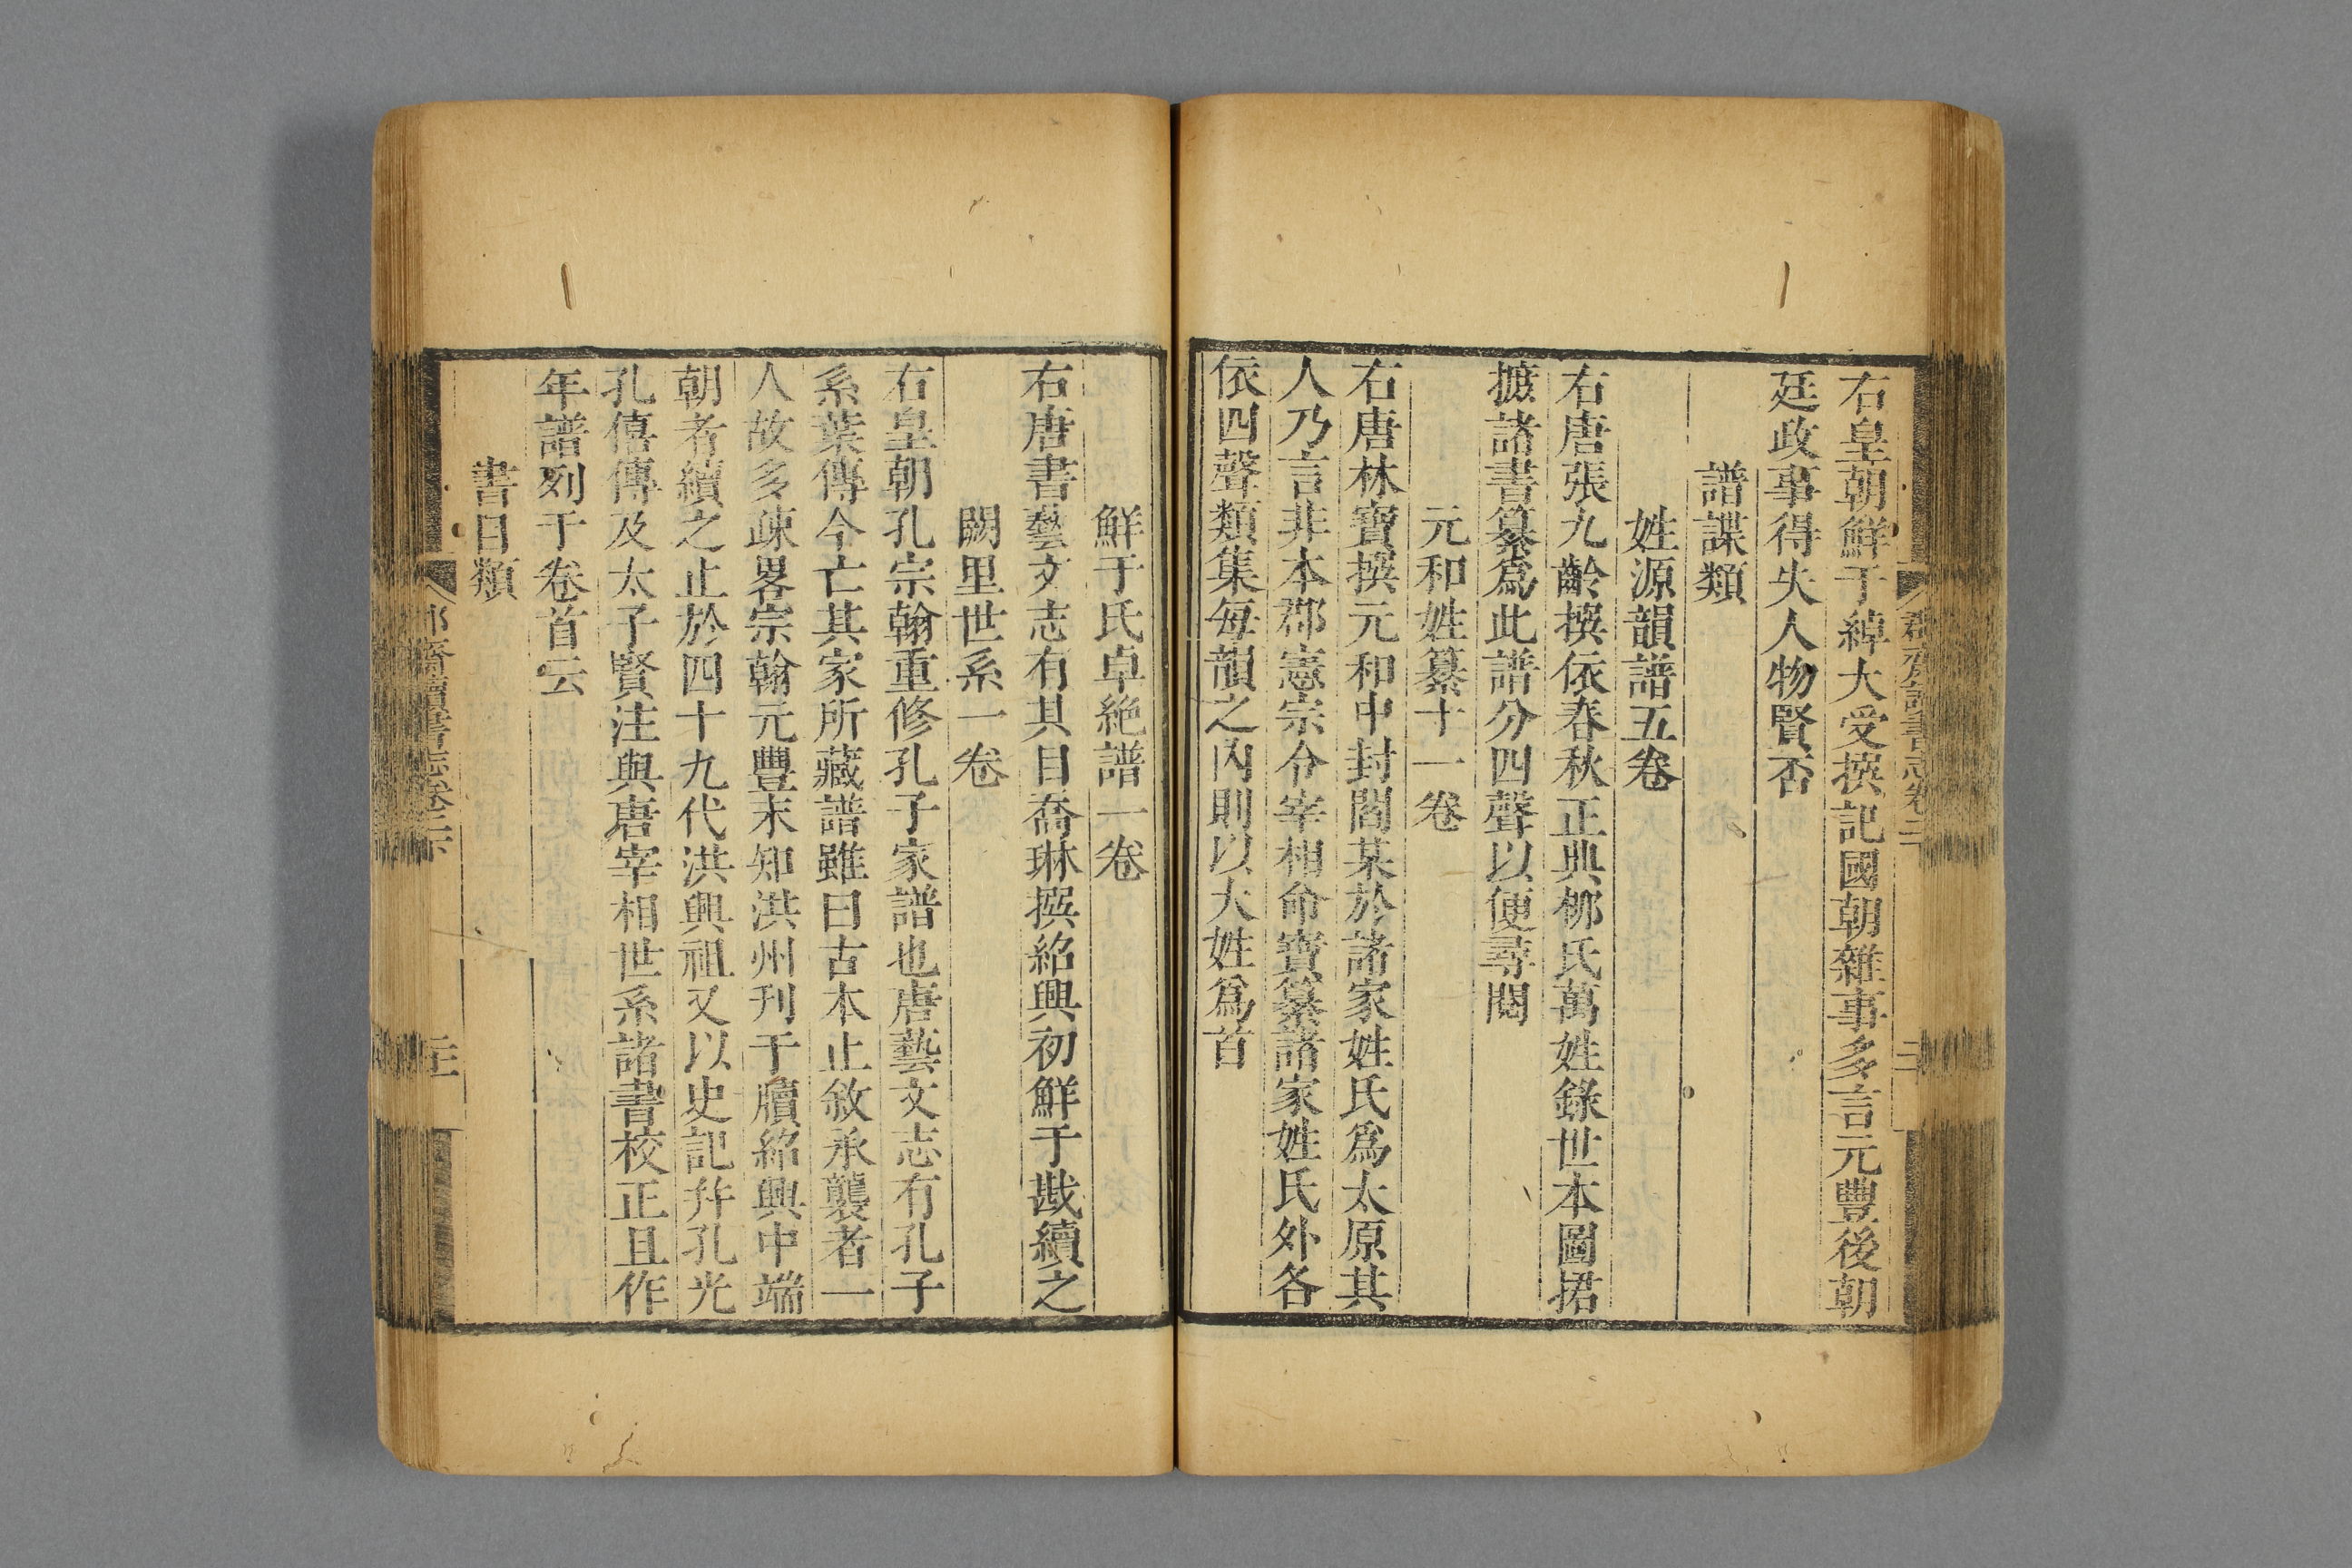 右皇朝鮮于綽大受撰記國朝雜事多言元豐後朝
廷政事得失人物賢否
譜諜類
姓源韻譜五卷
右唐張九齡撰依春秋正典柳氏萬姓錄世本圖捃
摭諸書纂爲此譜分四聲以便尋閱
元和姓纂十一卷
右唐林寶撰元和中封閻某於諸家姓氏爲太原其
人乃言非本郡憲宗令宰相命寶纂諸家姓氏外各
依四聲類集每韻之內則以大姓爲首
鮮于氏卓絶譜一卷
右唐書藝文志有其目喬琳撰紹興初鮮于戡續之
闕里世系一卷
右皇朝孔宗翰重修孔子家譜也唐藝文志有孔子
系葉傳今亡其家所藏譜雖曰古本止敘承襲者一
人故多疎畧宗翰元豐末知洪州刊于牘紹興中端
朝者續之止於四十九代洪興祖又以史記幷孔光
孔僖傳及太子賢注與唐宰相世系諸書校正且作
年譜列于卷首云
書目類